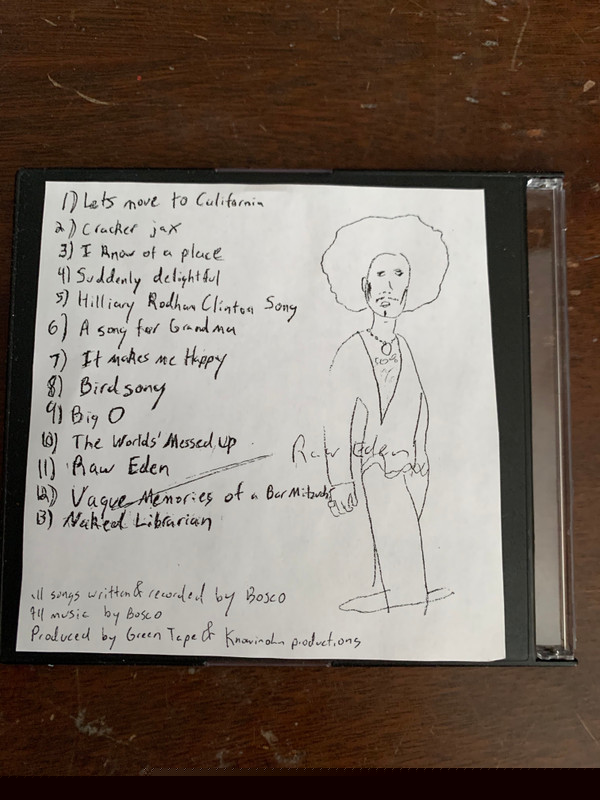 1) Lets move to California
2) Cracker jax
3) I know of a place
4) Suddenly delightful
5) Hilliary Rodham Clinton Song
6) A song for Grandma
7) It makes me Happy
8) Bird song
9) Big O
10) The Worlds' Messed up
11) Raw Eden
12) Vague Memories of a Bar Mitzvah
13) Naked Librarian
Raw Eden
All songs written & recorded by Bosco
All music by Bosco
Produced by Green Tape & productions